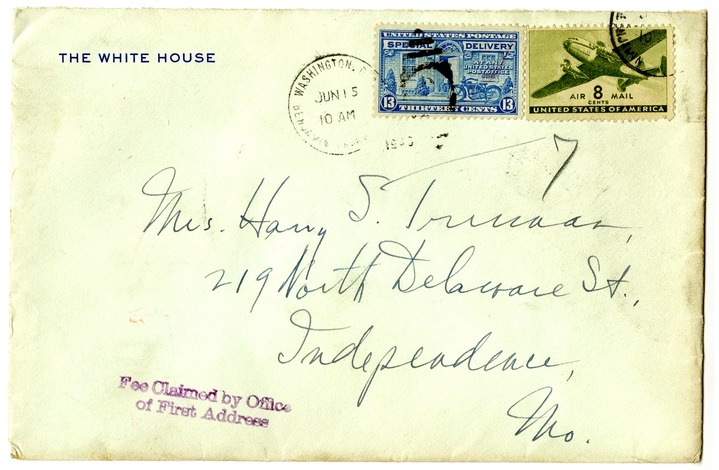 THE WHITE HOUSE
WASHINGTON, D.
JUN 15
10 AM
UNITED STATES POSTAGE
SPECIAL DELIVERY
AT ANY
UNITED STATES
POST OFFICE
13 THIRTEEN CENTS 13
AIR 8 MAIL
CENTS
UNITED STATES OF AMERICA
7
Mrs. Harry S. Truman,
219 North Delaware St.,
Independence,
Mo.
Fee Claimed by Office
of First Address